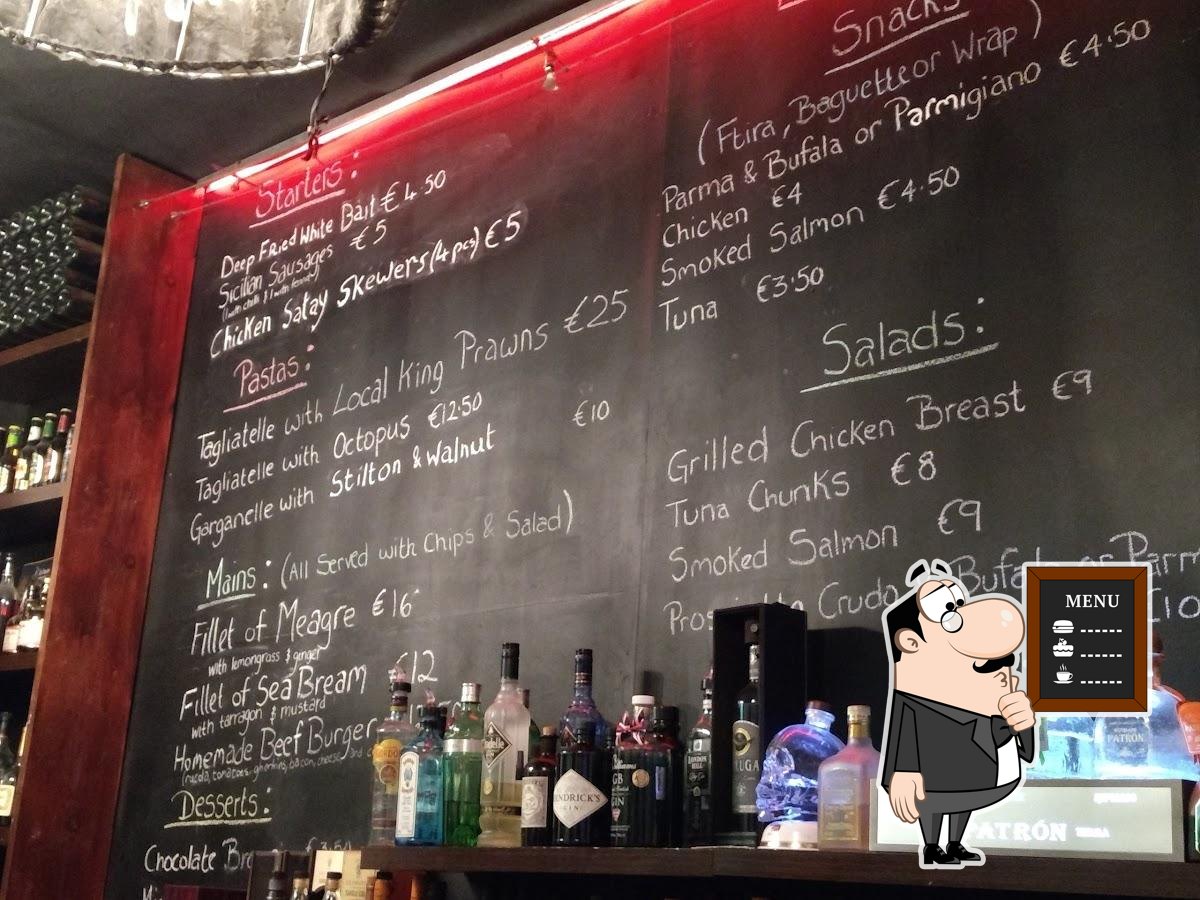 Starters:
Deep Fried White Bait €4.50
Sicilian Sausages €5
Chicken Satay Skewers (4 pcs) €5
Pastas:
Tagliatelle with Local King Prawns €25
Tagliatelle with Octopus €12.50
Garganelle with Stilton & Walnut €10
Mains: (All Served with Chips & Salad)
Fillet of Meagre €16
with lemongrass & ginger
Fillet of Sea Bream €12
with tarragon & mustard
Homemade Beef Burger
(rucola, tomatoes, gherkins, bacon, cheese
Desserts:
Chocolate
Snacks
(Ftira, Baguette or Wrap)
Parma & Bufala or Parmigiano €4.50
Chicken €4
Smoked Salmon €4.50
Tuna €3.50
Salads:
Grilled Chicken Breast €9
Tuna Chunks €8
Smoked Salmon €9
Crudo Bufala or Parm
MENU
HENDRICK'S
GIN
LONDON
PATRÓN
PATRÓN